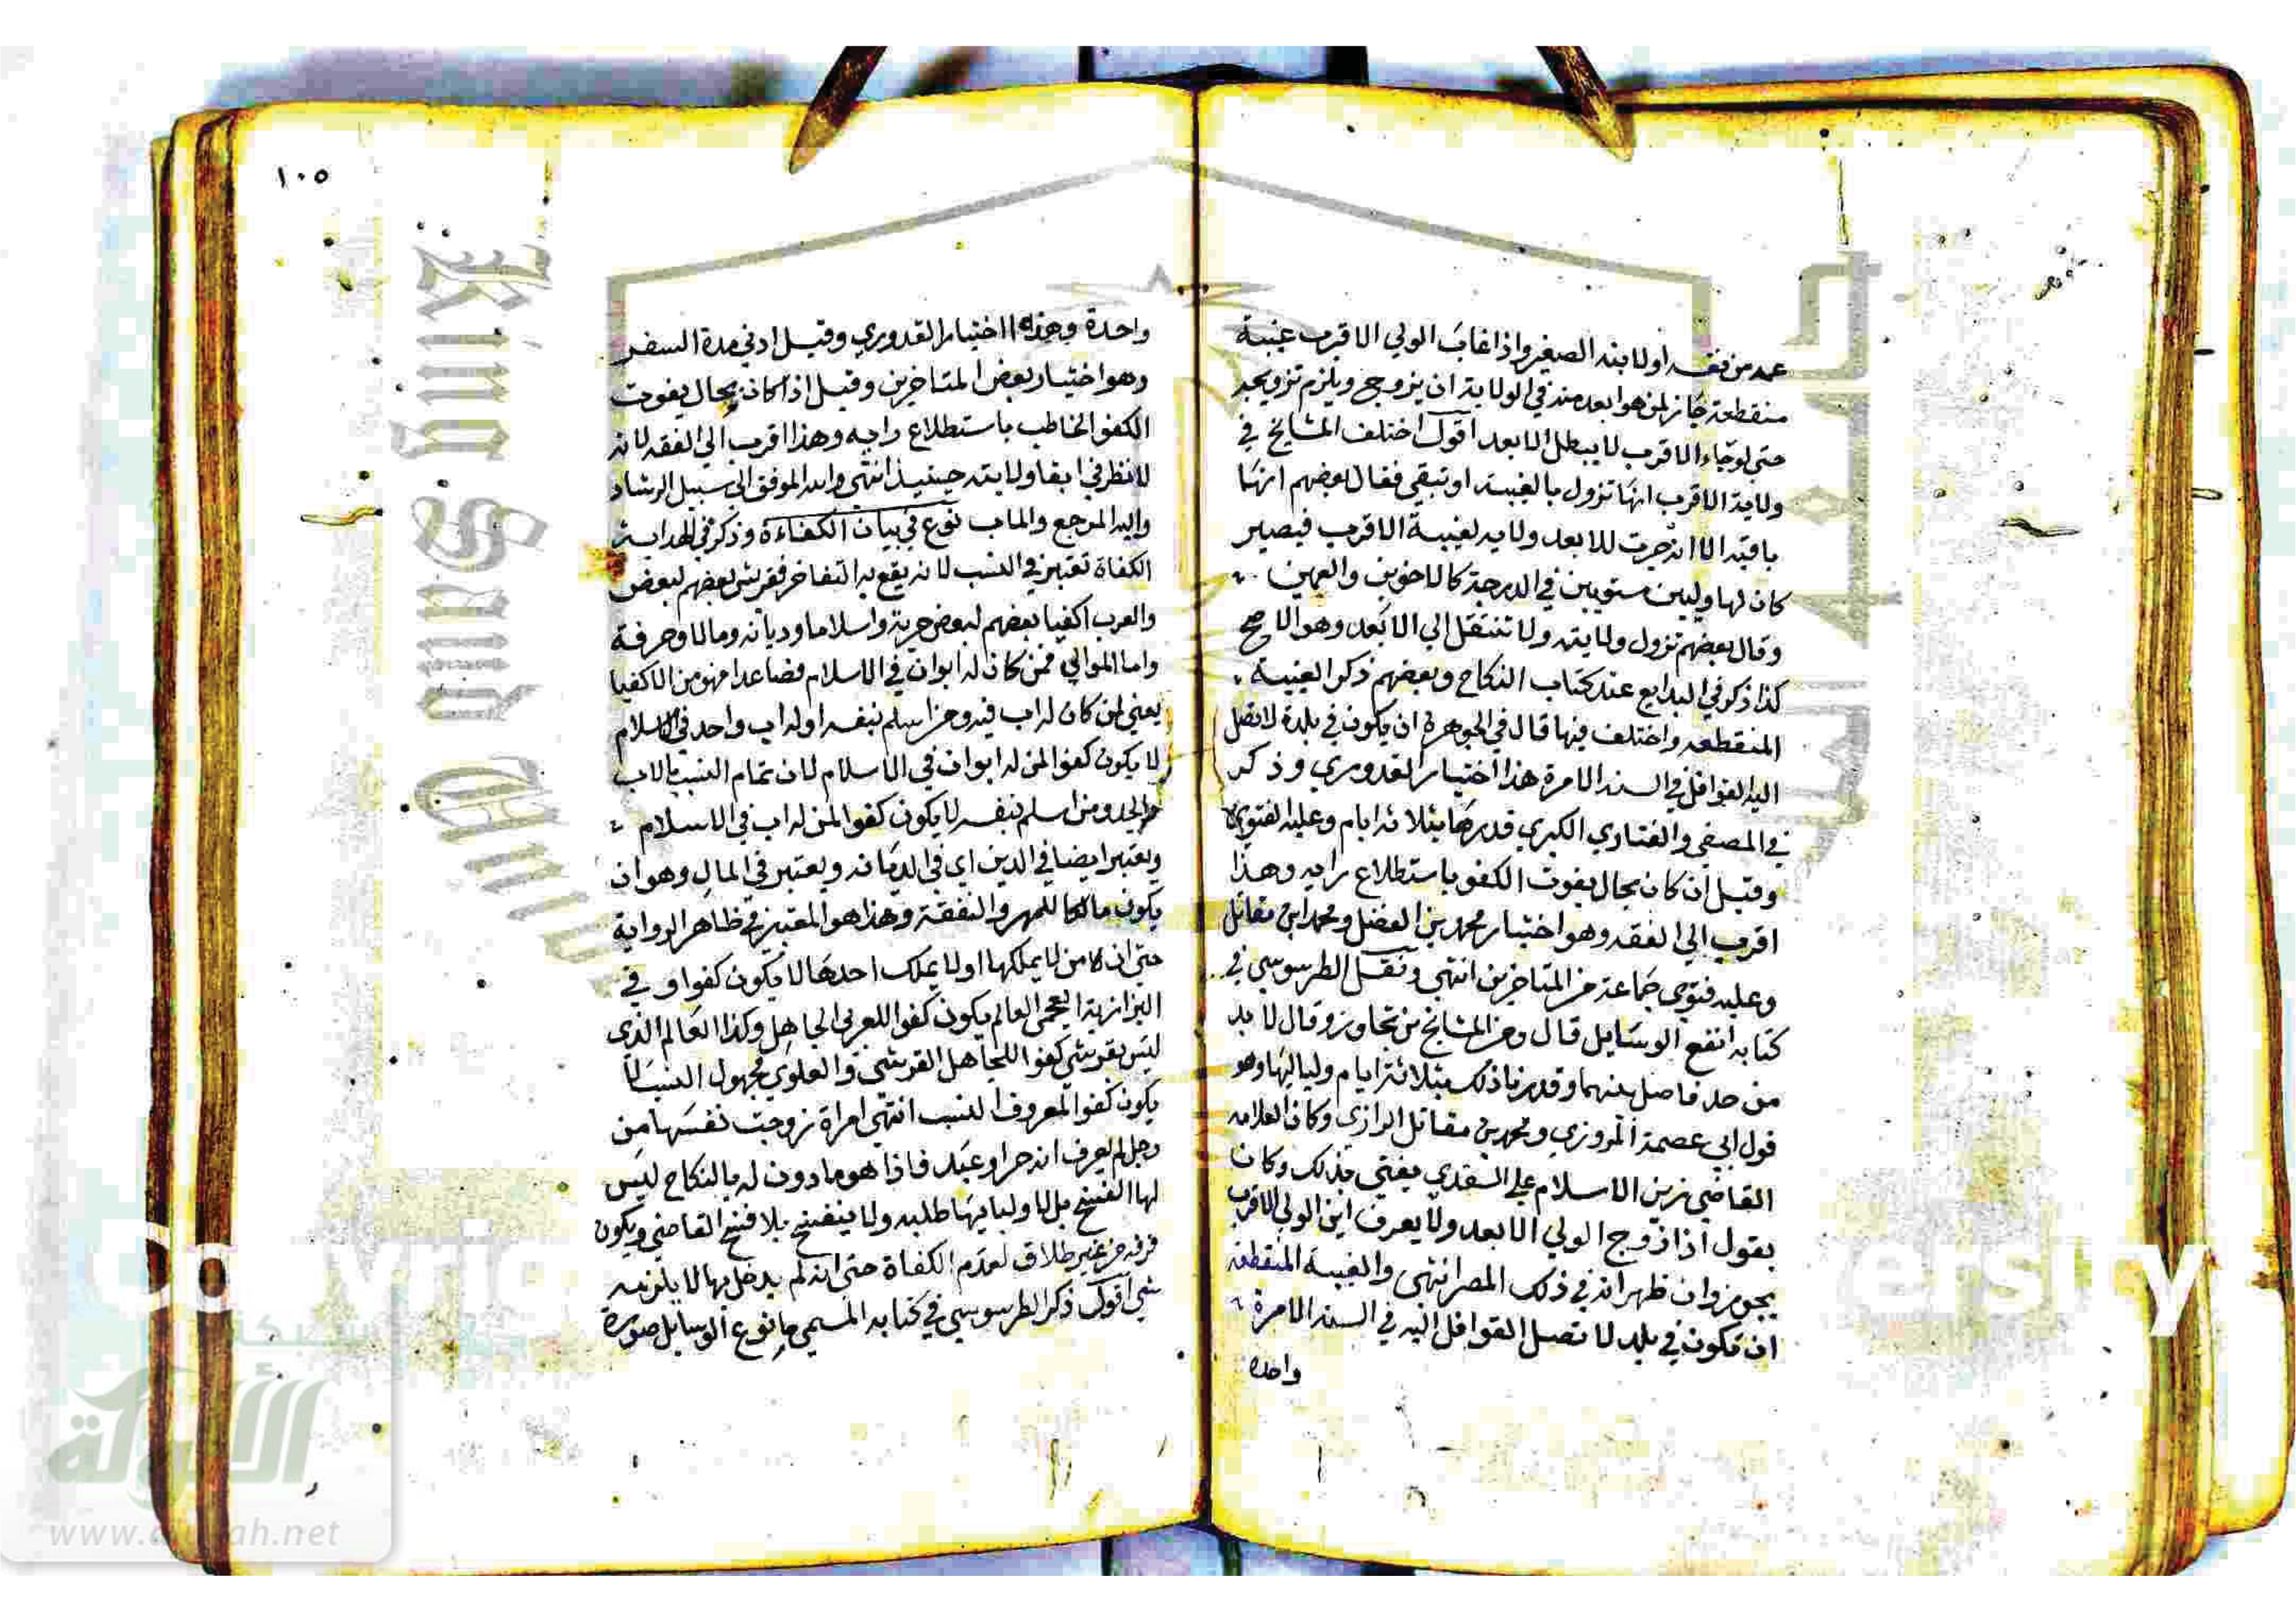 عمه من نفسه او لابنه الصغير واذا غاب الولي الاقرب غيبة
منقطعة جاز لمن هو ابعد منه في الولاية ان يزوج ويلزم تزويجه
حتى لو جاء الاقرب لا يبطل الابعد اقول اختلف المشايخ في
ولاية الاقرب انها تزول بالغيبة او تبقى فقال بعضهم انها
باقية الا انه حدثت للابعد ولاية لغيبة الاقرب فيصير
كان لها وليين مستويين في الدرجة كالاخوين والعمين
وقال بعضهم تزول ولايته ولا تنتقل الي الابعد وهو الاصح
كذا ذكر في البدايع عند كتاب النكاح وبعضهم ذكر الغيبة
المنقطعة واختلف فيها قال في الجوهرة ان يكون في بلدة لا تصل
اليه القوافل في السنة الا مرة هذا اختيار القدوري وذكر
في المصفى والفتاوي الكبرى قدرها بثلاثة ايام وعليه الفتوى
وقيل ان كان بحال يفوت الكفو باستطلاع رايه وهذا
اقرب الي الفقه وهو اختيار محمد بن الفضل ومحمد ابن مقاتل
وعليه فتوى جماعة من المتاخرين انتهى ونقل الطرسوسي في
كتابه انفع الوسايل قال ومن المشايخ من تجاوز وقال لا بد
من حد فاصل بينهما وقدرنا ذلك بثلاثة ايام ولياليها وهو
قول ابي عصمة المروزي ومحمد بن مقاتل الرازي وكان العلامه
القاضي زين الاسلام علي السغدي يفتي بذلك وكان
يقول اذا زوج الولي الابعد ولا يعرف اين الولي الاقرب
يجوز وان ظهر انه في ذلك المصر انتهى والغيبة المنقطعة
ان تكون في بلد لا تصل القوافل اليه في السنة الا مرة
واحدة
١٠٥
واحدة وهذا اختيار القدوري وقيل ادني مدة السفر
وهو اختيار بعض المتاخرين وقيل اذا كان بحال يفوت
الكفو الخاطب باستطلاع رايه وهذا اقرب الي الفقه لانه
لا نظر في ابقا ولايته حينيذ انتهى والله الموفق الي سبيل الرشاد
واليه المرجع والماب نوع في بيان الكفاءة وذكر في الهداية
الكفاة تعتبر في النسب لانه يقع به التفاخر فقريش بعضهم لبعض
والعرب اكفيا بعضهم لبعض حرية واسلاما وديانة ومالا وحرفة
واما الموالي فمن كان له ابوان في الاسلام فصاعدا فهو من الاكفيا
يعني لمن كان له اب فيه ومن اسلم بنفسه او له اب واحد في الاسلام
لا يكون كفوا لمن له ابوان في الاسلام لان تمام النسب بالاب
والجد ومن اسلم بنفسه لا يكون كفوا لمن له اب في الاسلام
وتعتبر ايضا في الدين اي في الديانه ويعتبر في المال وهو ان
يكون مالكا للمهر والنفقة وهذا هو المعتبر في ظاهر الرواية
حتى ان من لا يملكها او لا يملك احدها لا يكون كفوا وفي
البزازية العجمي العالم يكون كفوا للعربي الجاهل وكذا العالم الذي
ليس بقرشي كفوا للجاهل القرشي والعلوي مجهول النسب لا
يكون كفوا لمعروف النسب انتهى امراة زوجت نفسها من
رجل لم يعرف انه حر او عبد فاذا هو ماذون له بالنكاح ليس
لها الفسخ بل لاوليايها طلبه ولا ينفسخ بلا فسخ القاضي ويكون
فرقه من غير طلاق لعدم الكفاة حتى انه لم يدخل بها لا يلزمه
شي اقول ذكر الطرسوسي في كتابه المسمى بانفع الوسايل صورة
شبكة
الألوكة
www.alukah.net